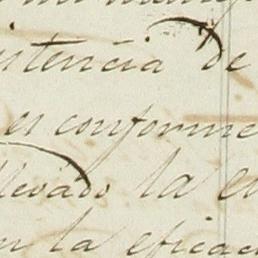 istencia de
es conforme
llevado la e
n la eficac